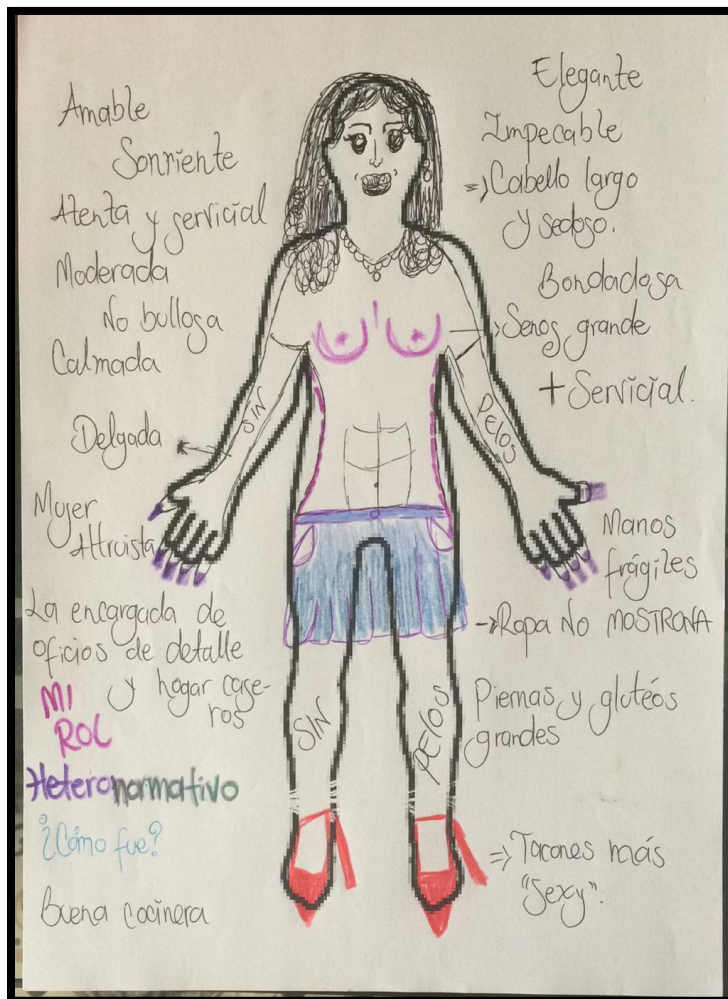 Amable
Sonriente
Atenta y servicial
Moderada
No bullosa
Calmada
Delgada
Mujer
Altruista
La encargada de
oficios de detalle
y hogar case-
ros
MI
ROL
Heteronormativo
¿Cómo fue?
Buena cocinera
SIN
PELOS
SIN
PELOS
Elegante
Impecable
=> Cabello largo
y sedoso.
Bondadosa
Senos grande
+ Servicial.
Manos
frágiles
-> Ropa No MOSTRONA
Piernas y glutéos
grandes
=> Tacones más
"Sexy".